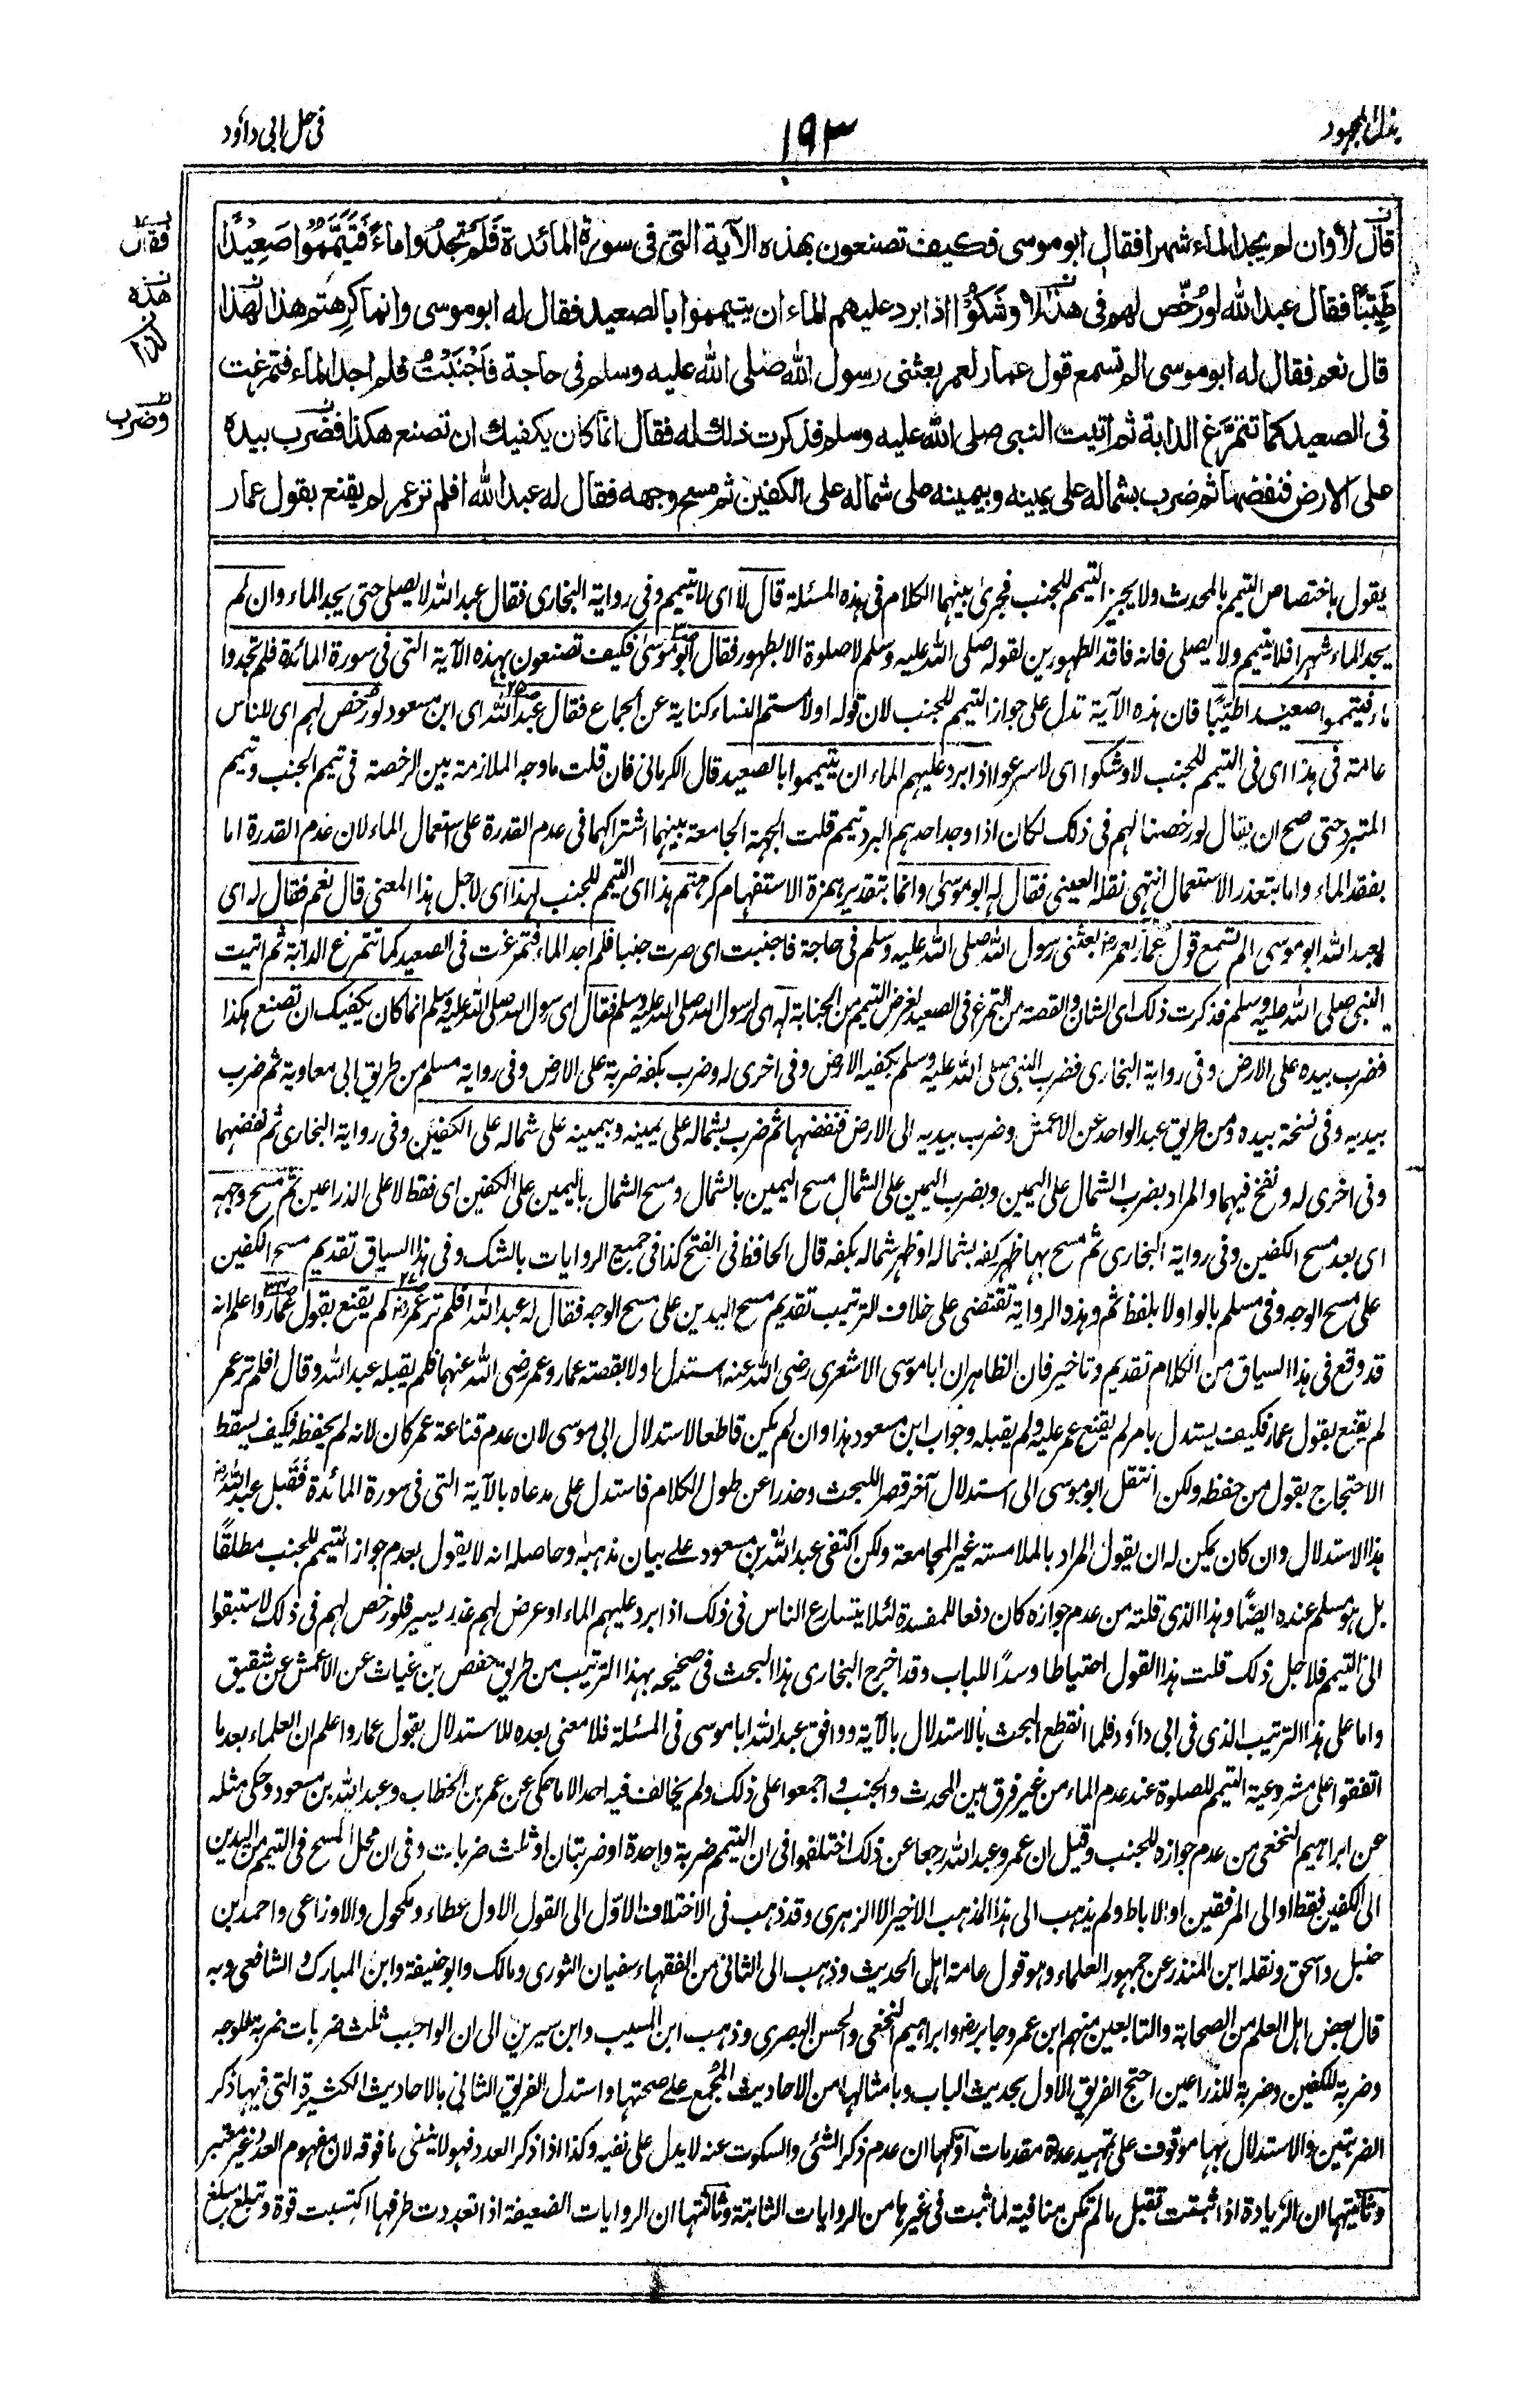 بذل المجهود
١٩٣
في حل ابي داود
قال لا وان لم يجد الماء شهرا فقال ابو موسى فكيف تصنعون بهذه الآية التى فى سورة المائدة فَلَمْ تَجِدُوا ماءً فَتَيَمَّمُوا صَعِيْدًا
طَيِّبًا فقال عبد الله لو رُخّص لهم فى هذا لاوشَكُوْا اذا برد عليهم الماء ان يتيمموا بالصعيد فقال له ابو موسى وانما كرِهتم هذا لهذا
قال نعم فقال له ابو موسى الم تسمع قول عمار لعمر بعثنى رسول الله صلى الله عليه وسلم فى حاجة فَاَجْنَبْتُ فلم اجد الماء فتمرغت
فى الصعيد كما تتمرّغ الدابة ثم اتيت النبى صلى الله عليه وسلم فذكرت ذلك له فقال انما كان يكفيك ان تصنع هكذا فضرب بيده
على الارض فنفضها ثم ضرب بشماله على يمينه وبيمينه على شماله على الكفين ثم مسح وجهه فقال له عبد الله افلم تر عمر لم يقنع بقول عمار
فقال
هذه
لذا
وضرب
يقول باختصاص التيمم بالمحدث ولا يجيز التيمم للجنب فجرى بينهما الكلام فى هذه المسئلة قال لا اى لا يتيمم وفى رواية البخارى فقال عبد الله لا يصلى حتى يجد الماء وان لم
يجد الماء شهرا فلا يتيمم ولا يصلى فانه فاقد الطهورين لقوله صلى الله عليه وسلم لا صلوة الا بطهور فقال ابو موسى فكيف تصنعون بهذه الآية التى فى سورة المائدة فلم تجدوا
ماء فتيمموا صعيدا طيّبًا فان هذه الآية تدل على جواز التيمم للجنب لان قوله او لامستم النساء كناية عن الجماع فقال عبد الله اى ابن مسعود لو رُخّص لهم اى للناس
عامة فى هذا اى فى التيمم للجنب لاوشكوا اى لاسرعوا اذا برد عليهم الماء ان يتيمموا بالصعيد قال الكرمانى فان قلت ما وجه الملازمة بين الرخصة فى تيمم الجنب وتيمم
المتبرد حتى صح ان يقال لو رخصنا لهم فى ذلك لكان اذا وجد احدهم البرد تيمم قلت الجهة الجامعة بينهما اشتراكهما فى عدم القدرة على استعمال الماء لان عدم القدرة اما
بفقد الماء واما بتعذر الاستعمال انتهى نقله العينى فقال له ابو موسى وانما بتقدير همزة الاستفهام كرهتم هذا اى التيمم للجنب لهذا اى لاجل هذا المعنى قال نعم فقال له اى
لعبد الله ابو موسى الم تسمع قول عمار لعمر بعثنى رسول الله صلى الله عليه وسلم فى حاجة فاجنبت اى صرت جنبا فلم اجد الماء فتمرغت فى الصعيد كما تتمرغ الدابة ثم اتيت
النبى صلى الله عليه وسلم فذكرت ذلك اى الشان والقصة من التمرغ فى الصعيد لغرض التيمم من الجنابة له اى لرسول الله صلى الله عليه وسلم فقال اى رسول الله صلى الله عليه وسلم انما كان يكفيك ان تصنع هكذا
فضرب بيده على الارض وفى رواية البخارى فضرب النبى صلى الله عليه وسلم بكفيه الارض وفى اخرى له وضرب بكفه ضربة على الارض وفى رواية مسلم من طريق ابى معاوية ثم ضرب
بيديه وفى نسخة بيده ومن طريق عبد الواحد عن الاعمش وضرب بيديه الى الارض فنفضها ثم ضرب بشماله على يمينه وبيمينه على شماله على الكفين وفى رواية البخارى ثم نفضهما
وفى اخرى له ونفخ فيهما والمراد بضرب الشمال على اليمين وبضرب اليمين على الشمال مسح اليمين بالشمال ومسح الشمال باليمين على الكفين اى فقط لا على الذراعين ثم مسح وجهه
اى بعد مسح الكفين وفى رواية البخارى ثم مسح بهما ظهر كفه بشماله او ظهر شماله بكفه قال الحافظ فى الفتح كذا فى جميع الروايات بالشك وفى هذا السياق تقديم مسح الكفين
على مسح الوجه وفى مسلم بالواو لا بلفظ ثم وهذه الرواية تقتضى على خلاف الترتيب تقديم مسح اليدين على مسح الوجه فقال له عبد الله افلم تر عمر لم يقنع بقول عمار واعلم انه
قد وقع فى هذا السياق من الكلام تقديم وتاخير فان الظاهر ان ابا موسى الاشعرى رضى الله عنه استدل اولا بقصة عمار وعمر رضى الله عنهما فلم يقبله عبد الله وقال افلم تر عمر
لم يقنع بقول عمار فكيف يستدل بامر لم يقنع عمر عليه ولم يقبله وجواب ابن مسعود هذا وان لم يكن قاطعا لاستدلال ابى موسى لان عدم قناعة عمر كان لانه لم يحفظه فكيف يسقط
الاحتجاج بقول من حفظه ولكن انتقل ابو موسى الى استدلال آخر قصرا للبحث وحذرا عن طول الكلام فاستدل على مدعاه بالآية التى فى سورة المائدة فقبل عبد الله
هذا الاستدلال وان كان يمكن له ان يقول المراد بالملامسة غير المجامعة ولكن اكتفى عبد الله بن مسعود على بيان مذهبه وحاصله انه لا يقول بعدم جواز التيمم للجنب مطلقًا
بل هو مسلم عنده ايضًا وهذا الذى قلته من عدم جوازه كان دفعا للمفسدة لئلا يتسارع الناس فى ذلك اذا برد عليهم الماء او عرض لهم عذر يسير فلو رخص لهم فى ذلك لاستبقوا
الى التيمم فلاجل ذلك قلت هذا القول احتياطا وسدًا للباب وقد اخرج البخارى هذا البحث فى صحيحه بهذا الترتيب من طريق حفص بن غياث عن الاعمش عن شقيق
واما على هذا الترتيب الذى فى ابى داؤد فلما انقطع البحث بالاستدلال بالآية ووافق عبد الله ابا موسى فى المسئلة فلا معنى بعده للاستدلال بقول عمار واعلم ان العلماء بعد ما
اتفقوا على مشروعية التيمم للصلوة عند عدم الماء من غير فرق بين المحدث والجنب واجمعوا على ذلك ولم يخالف فيه احد الا ما حكى عن عمر بن الخطاب وعبد الله بن مسعود وحكى مثله
عن ابراهيم النخعى من عدم جوازه للجنب وقيل ان عمر وعبد الله رجعا عن ذلك اختلفوا فى ان التيمم ضربة واحدة او ضربتان او ثلث ضربات وفى ان محل المسح فى التيمم من اليدين
الى الكفين فقط او الى المرفقين او الاباط ولم يذهب الى هذا المذهب الاخير الا الزهرى وقد ذهب فى الاختلاف الاوّل الى القول الاول عطاء ومكحول والاوزاعى واحمد بن
حنبل واسحق ونقله ابن المنذر عن جمهور العلماء وهو قول عامة اهل الحديث وذهب الى الثانى من الفقهاء سفيان الثورى ومالك وابو حنيفة وابن المبارك والشافعى وبه
قال بعض اهل العلم من الصحابة والتابعين منهم ابن عمر وجابر وابراهيم النخعى والحسن البصرى وذهب ابن المسيب وابن سيرين الى ان الواجب ثلث ضربات ضربة للوجه
وضربة للكفين وضربة للذراعين احتج الفريق الاول بحديث الباب وبامثالها من الاحاديث المُجْمَع على صحتها واستدل الفريق الثانى بالاحاديث الكثيرة التى فيها ذكر
الضربتين والاستدلال بها موقوف على تمهيد عدة مقدمات اَوَّلُها ان عدم ذكر الشئ والسكوت عنه لا يدل على نفيه وكذا اذا ذكر العدد فهو لا ينفى ما فوقه لان مفهوم العدد غير معتبر
وثانيتها ان الزيادة اذا ثبتت تقبل ما لم تكن منافية لما ثبت فى غيرها من الروايات الثابتة وثالثتها ان الروايات الضعيفة اذا تعددت طرقها اكتسبت قوة وتبلغ مبلغ